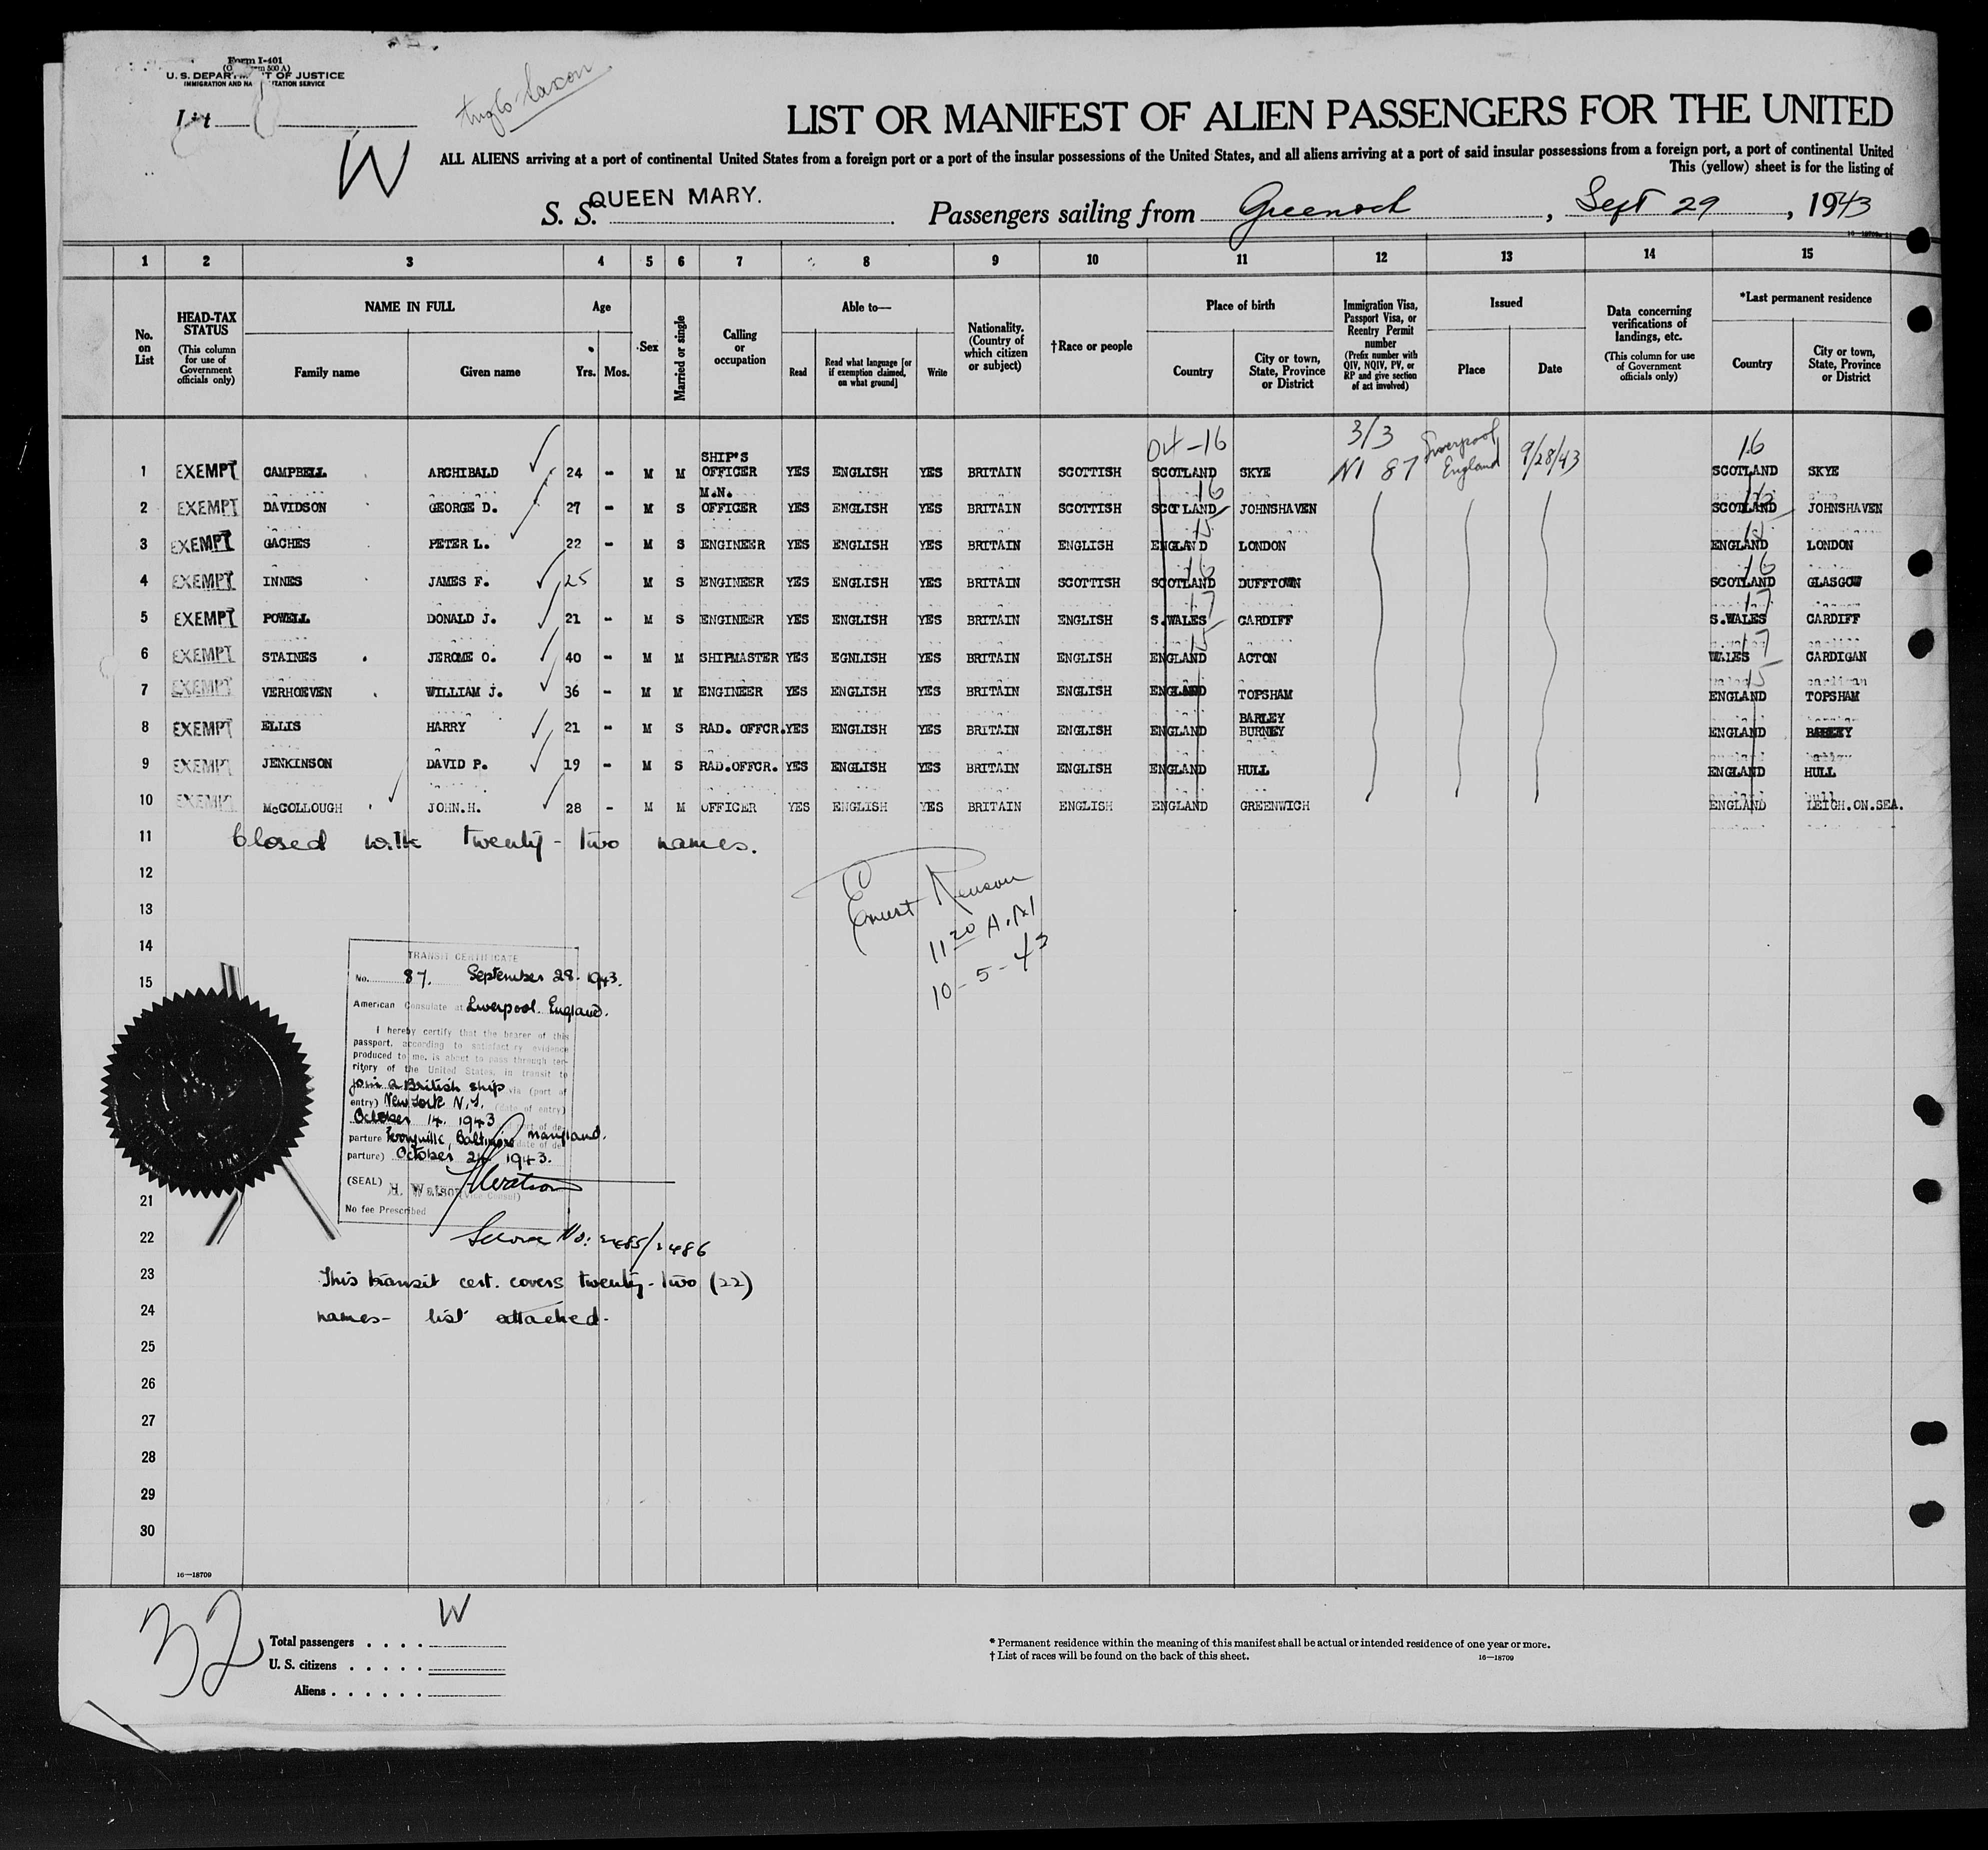 Form I-401
U. S. DEPARTMENT OF JUSTICE
IMMIGRATION AND NATURALIZATION SERVICE
List
Anglo Saxon
W
LIST OR MANIFEST OF ALIEN PASSENGERS FOR THE UNITED
ALL ALIENS arriving at a port of continental United States from a foreign port or a port of the insular possessions of the United States, and all aliens arriving at a port of said insular possessions from a foreign port, a port of continental United
This (yellow) sheet is for the listing of
S. S. QUEEN MARY. Passengers sailing from Greenock, Sept 29, 1943
1 2 3 4 5 6 7 8 9 10 11 12 13 14 15
No. on List
HEAD-TAX STATUS (This column for use of Government officials only)
NAME IN FULL Family name Given name
Age Yrs. Mos.
Sex
Married or single
Calling or occupation
Able to— Read Read what language [or if exemption claimed, on what ground] Write
Nationality. (Country of which citizen or subject)
†Race or people
Place of birth Country City or town, State, Province or District
Immigration Visa, Passport Visa, or Reentry Permit number (Prefix number with QIV, NQIV, PV, or RP and give section of act involved)
Issued Place Date
Data concerning verifications of landings, etc. (This column for use of Government officials only)
*Last permanent residence Country City or town, State, Province or District
1 EXEMPT CAMPBELL ARCHIBALD 24 - M M SHIP'S OFFICER YES ENGLISH YES BRITAIN SCOTTISH SCOTLAND SKYE 3/3 NI 87 Liverpool England 9/28/43 16 SCOTLAND SKYE
2 EXEMPT DAVIDSON GEORGE D. 27 - M S M.N. OFFICER YES ENGLISH YES BRITAIN SCOTTISH 16 SCOTLAND JOHNSHAVEN SCOTLAND JOHNSHAVEN
3 EXEMPT GACHES PETER L. 22 - M S ENGINEER YES ENGLISH YES BRITAIN ENGLISH 15 ENGLAND LONDON 15 ENGLAND LONDON
4 EXEMPT INNES JAMES F. 25 M S ENGINEER YES ENGLISH YES BRITAIN SCOTTISH 16 SCOTLAND DUFFTOWN 16 SCOTLAND GLASGOW
5 EXEMPT POWELL DONALD J. 21 - M S ENGINEER YES ENGLISH YES BRITAIN ENGLISH 17 S.WALES CARDIFF 17 S.WALES CARDIFF
6 EXEMPT STAINES JEROME O. 40 - M M SHIPMASTER YES EGNLISH YES BRITAIN ENGLISH 15 ENGLAND ACTON 17 WALES CARDIGAN
7 EXEMPT VERHOEVEN WILLIAM J. 36 - M M ENGINEER YES ENGLISH YES BRITAIN ENGLISH ENGLAND TOPSHAM 15 ENGLAND TOPSHAM
8 EXEMPT ELLIS HARRY 21 - M S RAD. OFFCR. YES ENGLISH YES BRITAIN ENGLISH ENGLAND BARLEY BURNEY ENGLAND
9 EXEMPT JENKINSON DAVID P. 19 - M S RAD.OFFCR. YES ENGLISH YES BRITAIN ENGLISH ENGLAND HULL ENGLAND HULL
10 EXEMPT McCOLLOUGH JOHN.H. 28 - M M OFFICER YES ENGLISH YES BRITAIN ENGLISH ENGLAND GREENWICH ENGLAND LEIGH.ON.SEA.
11 Closed with twenty-two names.
12
13
14
15
Ernest
11 20 A.M
10-5-43
TRANSIT CERTIFICATE
No. 87. September 28. 1943.
American Consulate at Liverpool. England.
I hereby certify that the bearer of this
passport, according to satisfactory evidence
produced to me, is about to pass through ter-
ritory of the United States, in transit to
join a British ship via (port of
entry) New York N.Y. (date of entry)
October 14. 1943
parture Baltimore Maryland.
parture) October 24 1943.
(SEAL) H. Watson (Vice Consul)
No fee Prescribed
21
22 Service No: 2485/2486
23 This transit cert. covers twenty-two (22)
24 names- list attached.
25
26
27
28
29
30
16—18709
32
W
Total passengers
U. S. citizens
Aliens
* Permanent residence within the meaning of this manifest shall be actual or intended residence of one year or more.
† List of races will be found on the back of this sheet.
16—18709